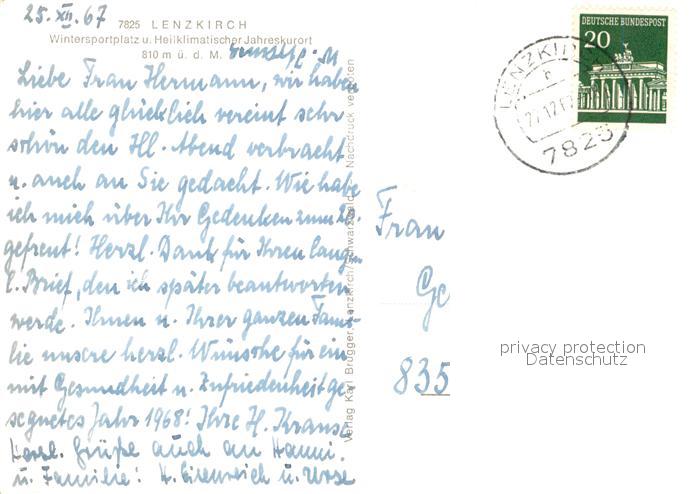 25. XII. 67
7825 LENZKIRCH
Wintersportplatz u. Heilklimatischer Jahreskurort
810 m ü. d. M.
Liebe Frau Hermann, wir haben
hier alle glücklich vereint sehr
schön den Hl. Abend verbracht
u. auch an Sie gedacht. Wie habe
ich mich über Ihr Gedenken zum
gefreut! Herzl. Dank für Ihren lang.
l. Brief, den ich später beantworten
werde. Ihnen u. Ihrer ganzen Fami-
lie unsere herzl. Wünsche für ein
mit Gesundheit u. Zufriedenheit ge-
segnetes Jahr 1968! Ihre H. Krause
Herzl. Grüße auch an Hanni
u. Familie!
Verlag Karl Brugger, Lenzkirch/Schwarzwald Nachdruck verboten
DEUTSCHE BUNDESPOST
20
LENZKI
7825
Frau
Ge
835
privacy protection
Datenschutz